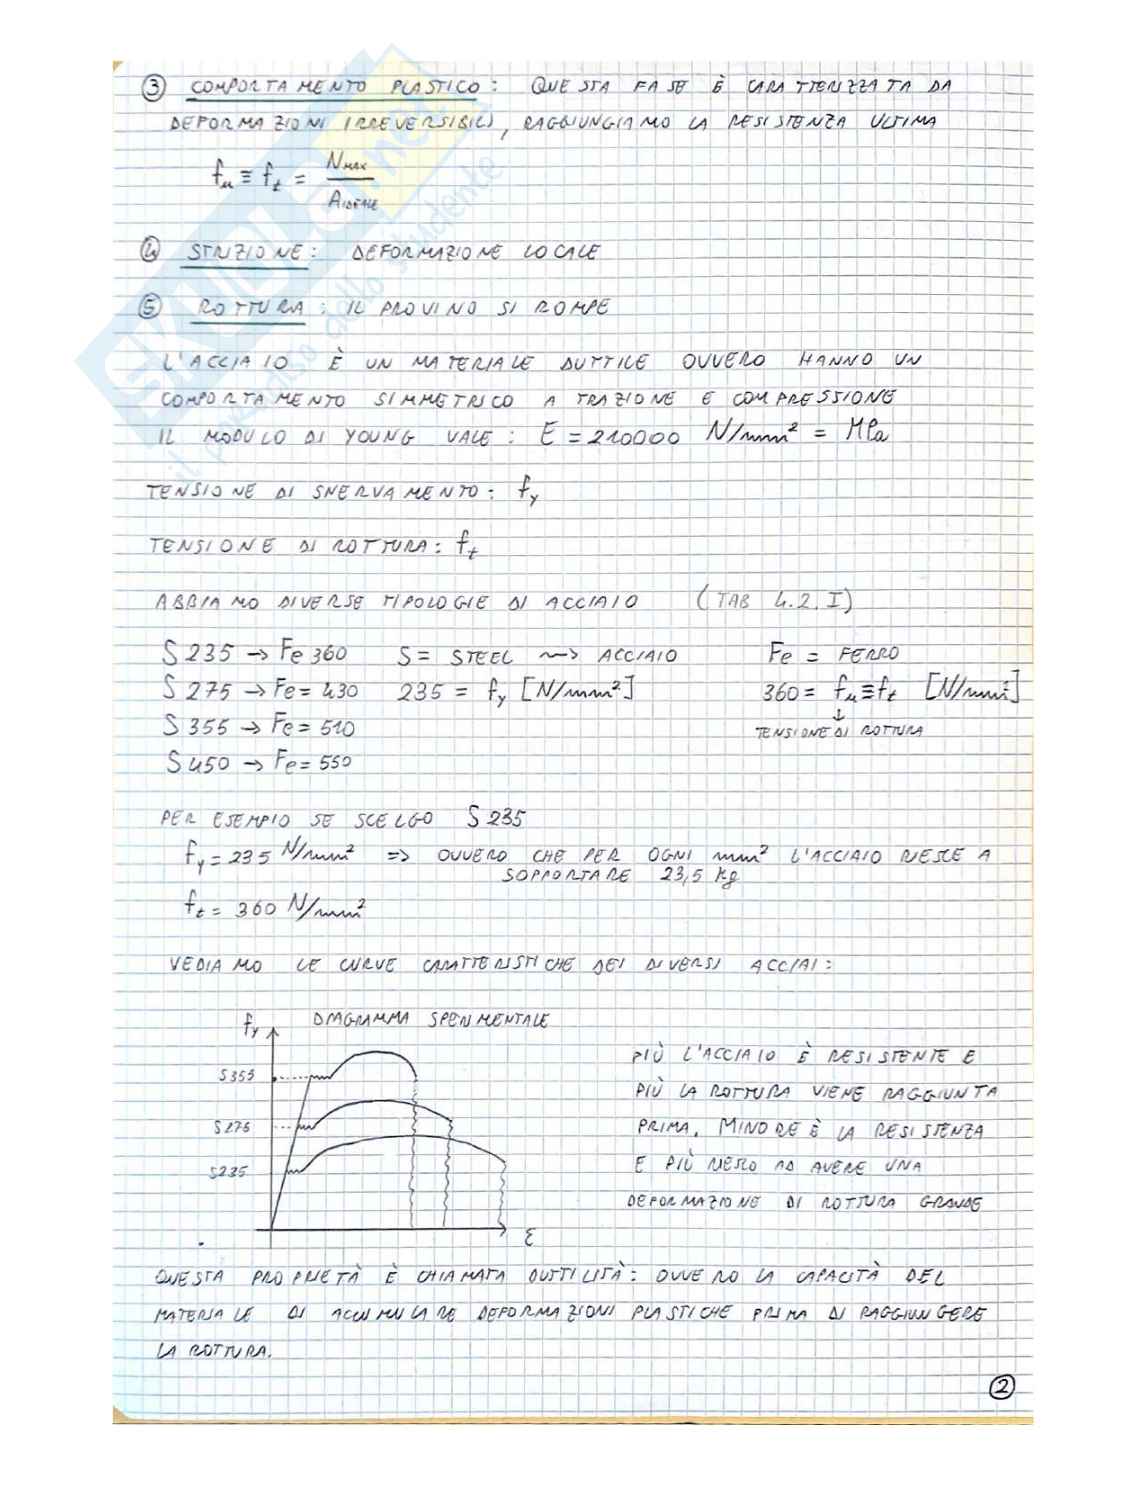 ③ COMPORTAMENTO PLASTICO: QUESTA FASE È CARATTERIZZATA DA
DEFORMAZIONI IRREVERSIBILI, RAGGIUNGIAMO LA RESISTENZA ULTIMA
fu ≡ ft = NMAX / AIDEALE
④ STRIZIONE: DEFORMAZIONE LOCALE
⑤ ROTTURA: IL PROVINO SI ROMPE
L'ACCIAIO È UN MATERIALE DUTTILE OVVERO HANNO UN
COMPORTAMENTO SIMMETRICO A TRAZIONE E COMPRESSIONE
IL MODULO DI YOUNG VALE: E = 210000 N/mm² = MPa
TENSIONE DI SNERVAMENTO: fy
TENSIONE DI ROTTURA: ft
ABBIAMO DIVERSE TIPOLOGIE DI ACCIAIO (TAB 4.2.I)
S235 → Fe 360 S = STEEL ⟿ ACCIAIO Fe = FERRO
S275 → Fe = 430 235 = fy [N/mm²] 360 = fu ≡ ft [N/mm²]
S355 → Fe = 510 ↓ TENSIONE DI ROTTURA
S450 → Fe = 550
PER ESEMPIO SE SCELGO S235
fy = 235 N/mm² => OVVERO CHE PER OGNI mm² L'ACCIAIO RIESCE A
SOPPORTARE 23,5 Kg
ft = 360 N/mm²
VEDIAMO LE CURVE CARATTERISTICHE DEI DIVERSI ACCIAI:
fy DIAGRAMMA SPERIMENTALE
S355
S275
S235
ε
PIÙ L'ACCIAIO È RESISTENTE E
PIÙ LA ROTTURA VIENE RAGGIUNTA
PRIMA. MINORE È LA RESISTENZA
E PIÙ RIESCO AD AVERE UNA
DEFORMAZIONE DI ROTTURA GRANDE
QUESTA PROPRIETÀ È CHIAMATA DUTTILITÀ: OVVERO LA CAPACITÀ DEL
MATERIALE DI ACCUMULARE DEFORMAZIONI PLASTICHE PRIMA DI RAGGIUNGERE
LA ROTTURA.
②
SKUOLA.net
il paradiso dello studente